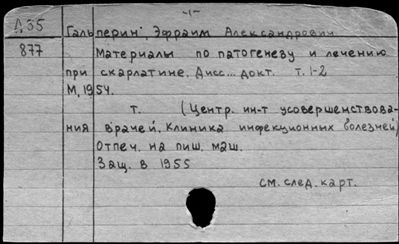 -1-
Д35 Гальперин, Эфраим Александрович
877 Материалы по патогенезу и лечению
при скарлатине. Дисс... докт. т. 1-2
М, 1954.
т. (Центр. ин-т усовершенствова-
ния врачей. Клиника инфекционних болезней)
Отпеч. на пиш. маш.
Защ. в 1955
см. след. карт.